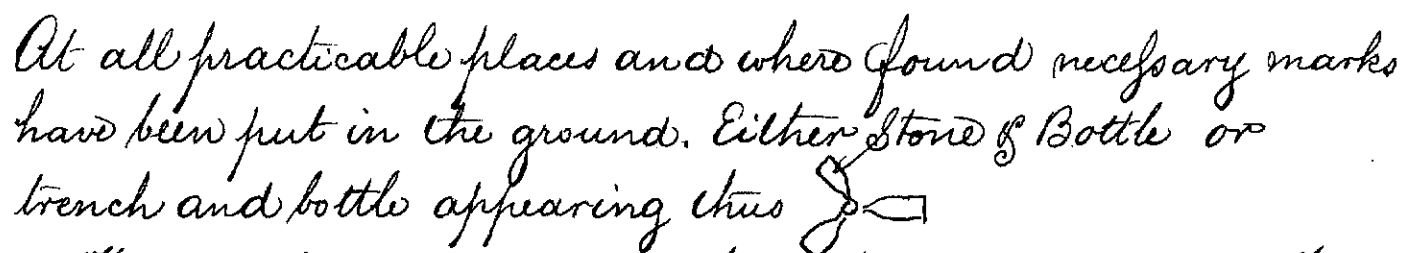 At all practicable places and where found necessary marks
have been put in the ground. Either Stone & Bottle or
trench and bottle appearing thus